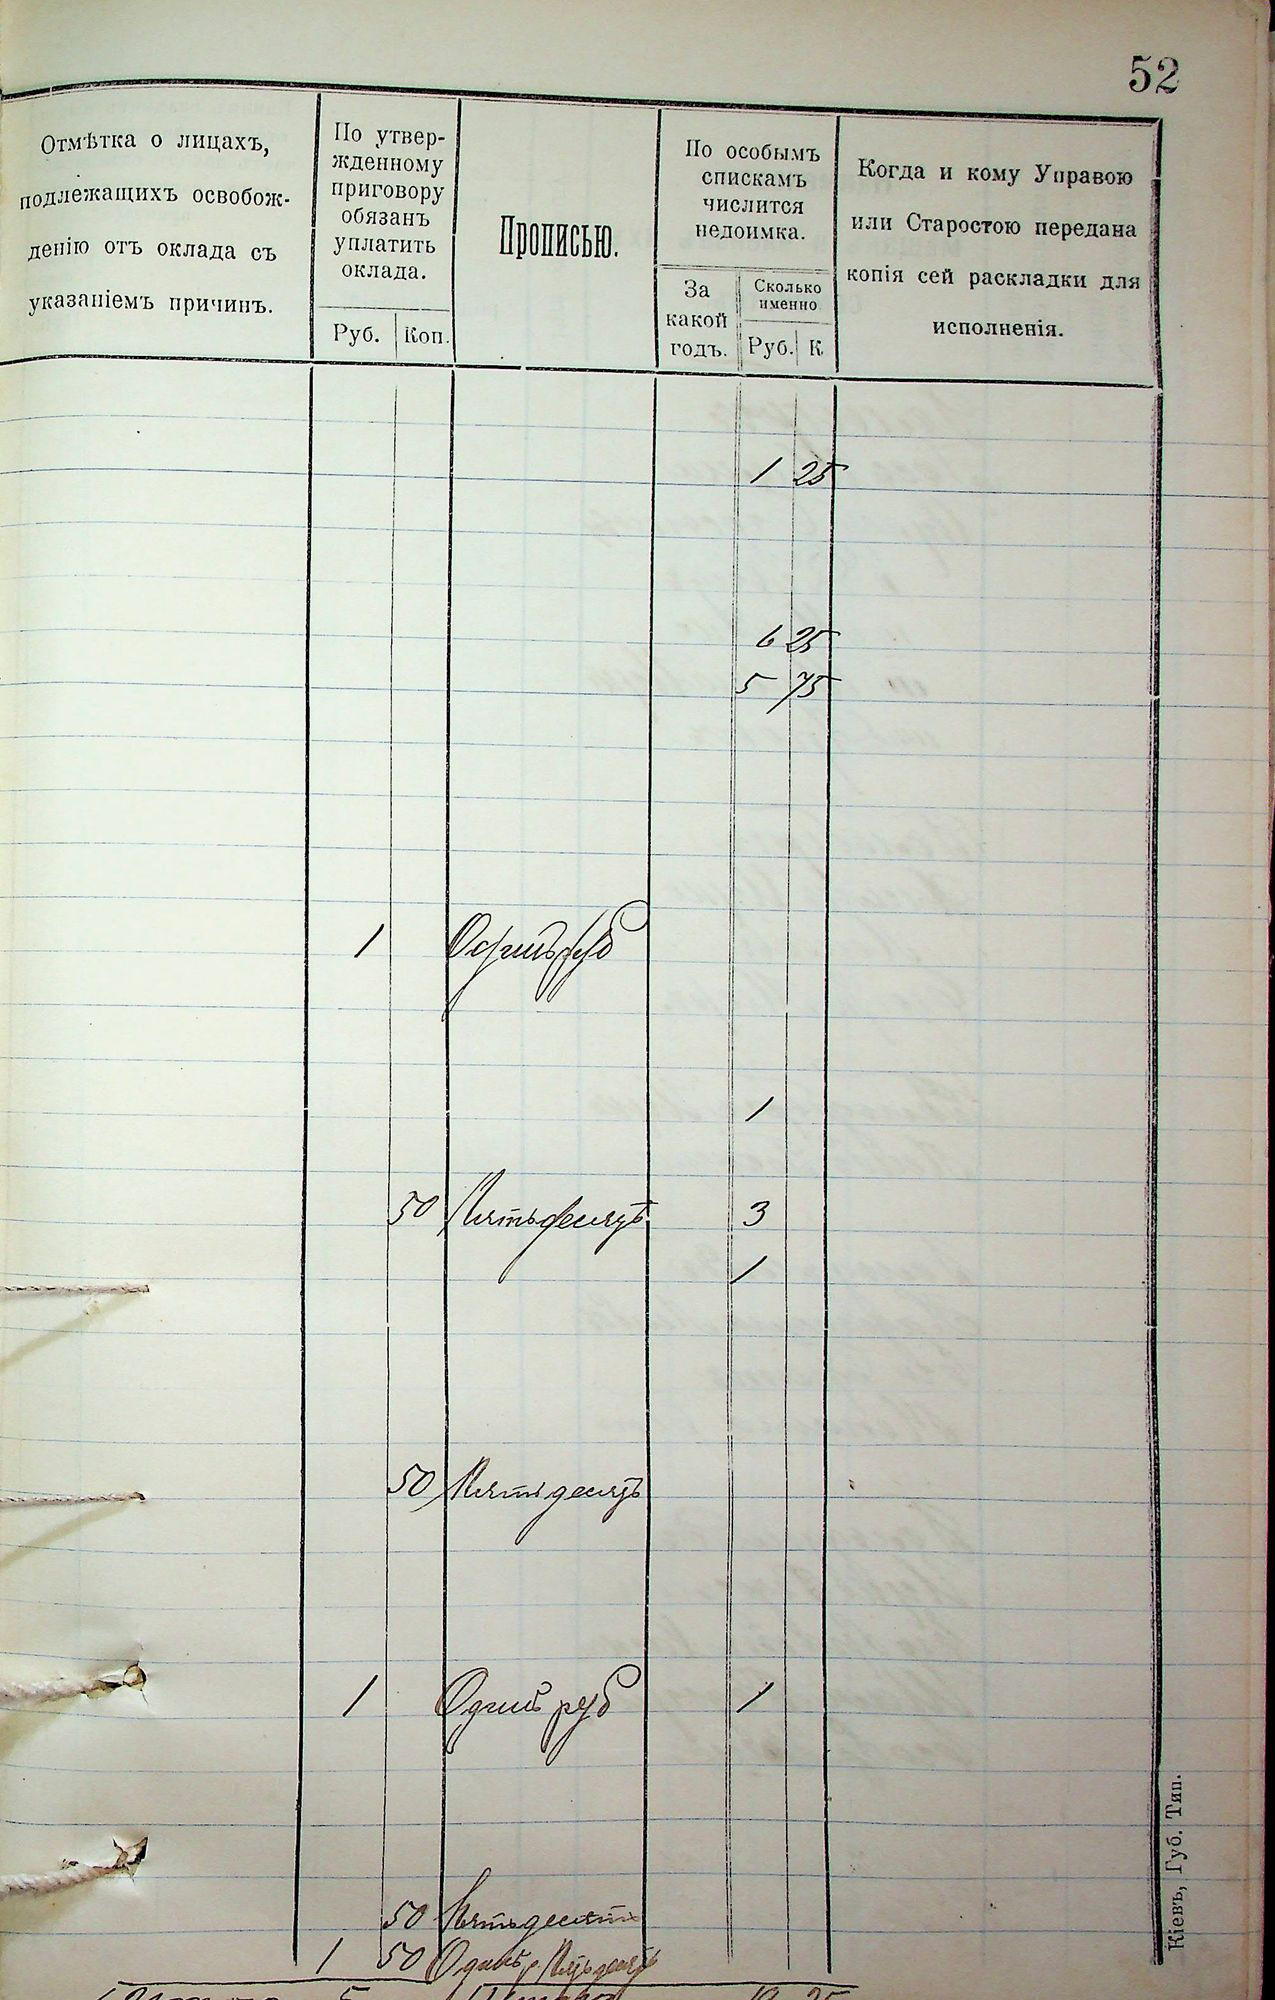 52
Отмѣтка о лицахъ,
подлежащихъ освобож-
денію отъ оклада съ
указаніемъ причинъ.
По утвер-
жденному
приговору
обязанъ
уплатить
оклада.
Руб.
Коп.
Прописью.
По особымъ
спискамъ
числится
недоимка.
За
какой
годъ.
Сколько
именно
Руб.
К.
Когда и кому Управою
или Старостою передана
копія сей раскладки для
исполненія.
1 25
6 25
5 75
1 Одинъ руб
1
50 Пятьдесятъ 3
1
50 Пятьдесятъ
1 Одинъ руб 1
50 Пятьдесятъ
1 50 Одинъ р Пятьдесятъ
5
Кіевъ, Губ. Тип.